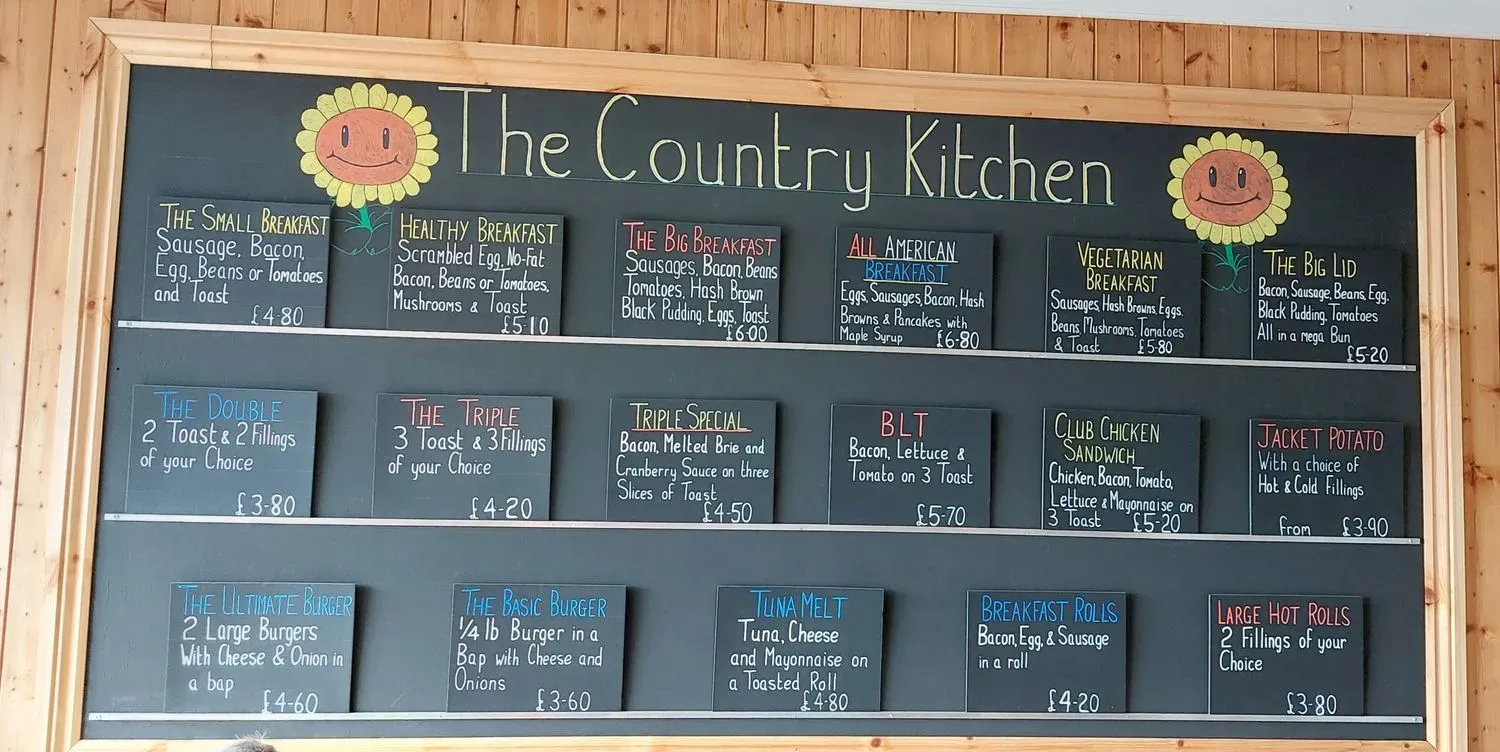 The Country Kitchen
THE SMALL BREAKFAST
Sausage, Bacon,
Egg, Beans or Tomatoes
and Toast
£4-80
HEALTHY BREAKFAST
Scrambled Egg, No-Fat
Bacon, Beans or Tomatoes,
Mushrooms & Toast
£5-10
THE BIG BREAKFAST
Sausages, Bacon, Beans
Tomatoes, Hash Brown
Black Pudding, Eggs, Toast
£6-00
ALL AMERICAN
BREAKFAST
Eggs, Sausages, Bacon, Hash
Browns & Pancakes with
Maple Syrup £6-80
VEGETARIAN
BREAKFAST
Sausages, Hash Browns, Eggs,
Beans, Mushrooms, Tomatoes
& Toast £5-80
THE BIG LID
Bacon, Sausage, Beans, Egg,
Black Pudding, Tomatoes
All in a mega Bun
£5-20
THE DOUBLE
2 Toast & 2 Fillings
of your Choice
£3-80
THE TRIPLE
3 Toast & 3 Fillings
of your Choice
£4-20
TRIPLE SPECIAL
Bacon, Melted Brie and
Cranberry Sauce on three
Slices of Toast
£4-50
BLT
Bacon, Lettuce &
Tomato on 3 Toast
£5-70
CLUB CHICKEN
SANDWICH
Chicken, Bacon, Tomato,
Lettuce & Mayonnaise on
3 Toast £5-20
JACKET POTATO
With a choice of
Hot & Cold Fillings
from £3-90
THE ULTIMATE BURGER
2 Large Burgers
With Cheese & Onion in
a bap
£4-60
THE BASIC BURGER
1/4 lb Burger in a
Bap with Cheese and
Onions
£3-60
TUNA MELT
Tuna, Cheese
and Mayonnaise on
a Toasted Roll
£4-80
BREAKFAST ROLLS
Bacon, Egg, & Sausage
in a roll
£4-20
LARGE HOT ROLLS
2 Fillings of your
Choice
£3-80